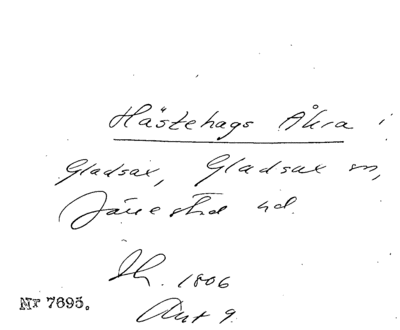 Hästehags Åkra i
Gladsax, Gladsax sn,
Järrestad hd.
Sk. 1806
Akt 9.
Nr 7695.